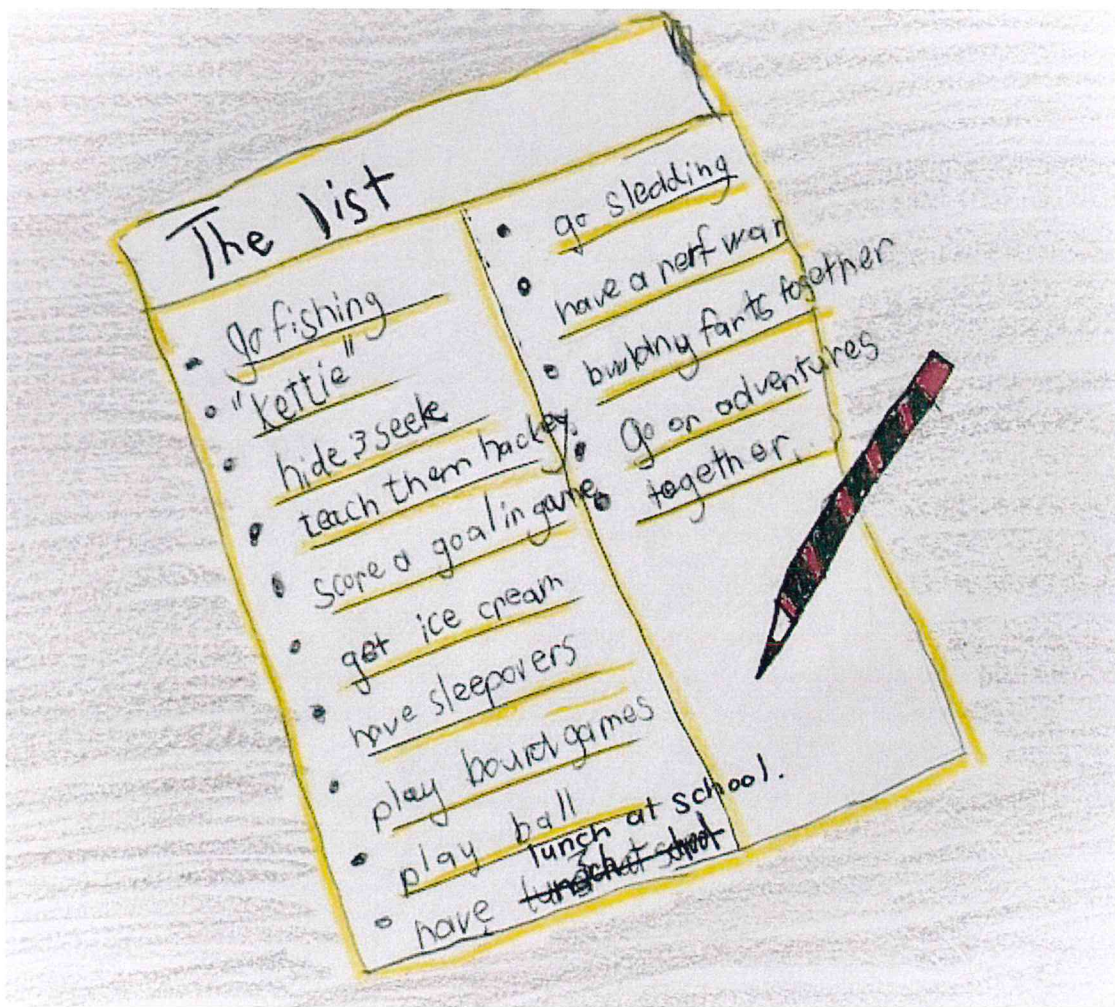 The list
go fishing
"Kettie"
hide & seek
teach them hockey
score a goal in game
get ice cream
have sleepovers
play board games
play ball
lunch at school.
have
go sledding
have a nerf war
together
go on adventures
together.